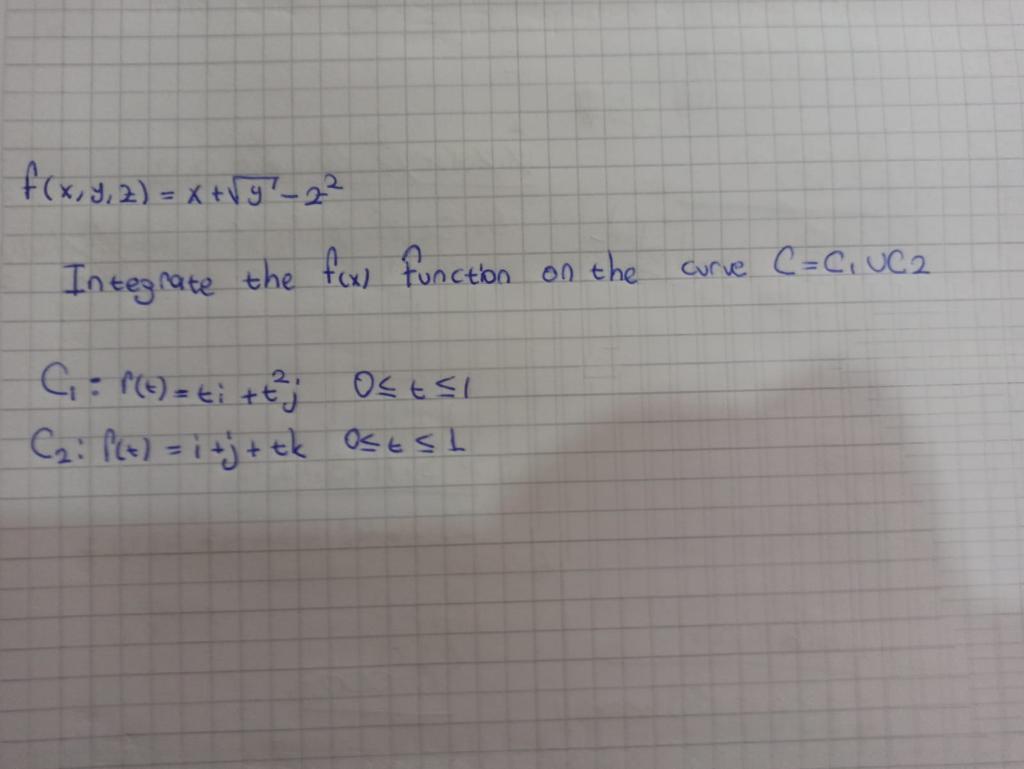 f(x,y,z) = x+√y - z²
Integrate the f(x) function on the curve C=C₁UC2
C₁ : r(t) = ti + t²j 0≤ t ≤1
C₂ : r(t) = i+j+tk 0≤ t ≤ 1